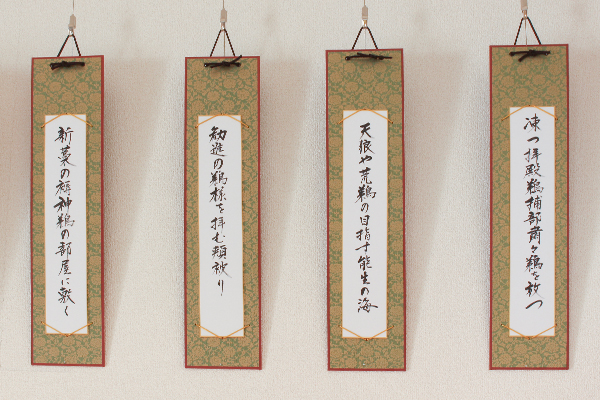 凍つ拝殿鵜捕部粛々鵜を放つ
天狼や荒鵜の目指す能生の海
勧進の鵜様を拝む頬被り
新藁の褥神鵜の部屋に敷く